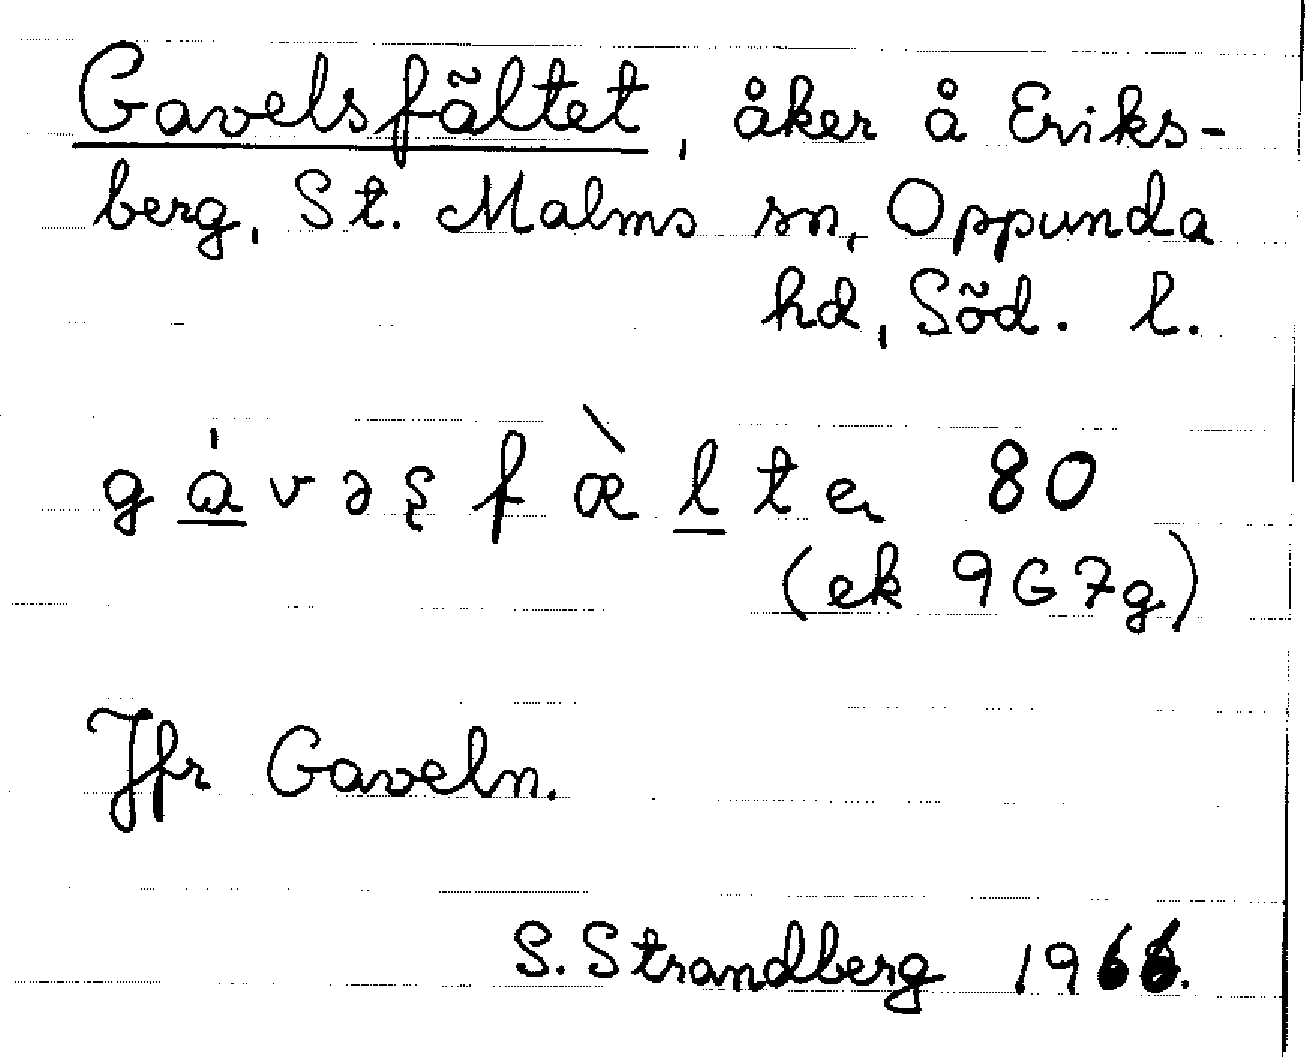 Gavelsfältet, åker å Eriks-
berg, St. Malms sn, Oppunda
hd, Söd. l.
gá̱vəʂfæ̀ḻte 80
(ek 9G7g)
Jfr Gaveln.
S. Strandberg 1966.